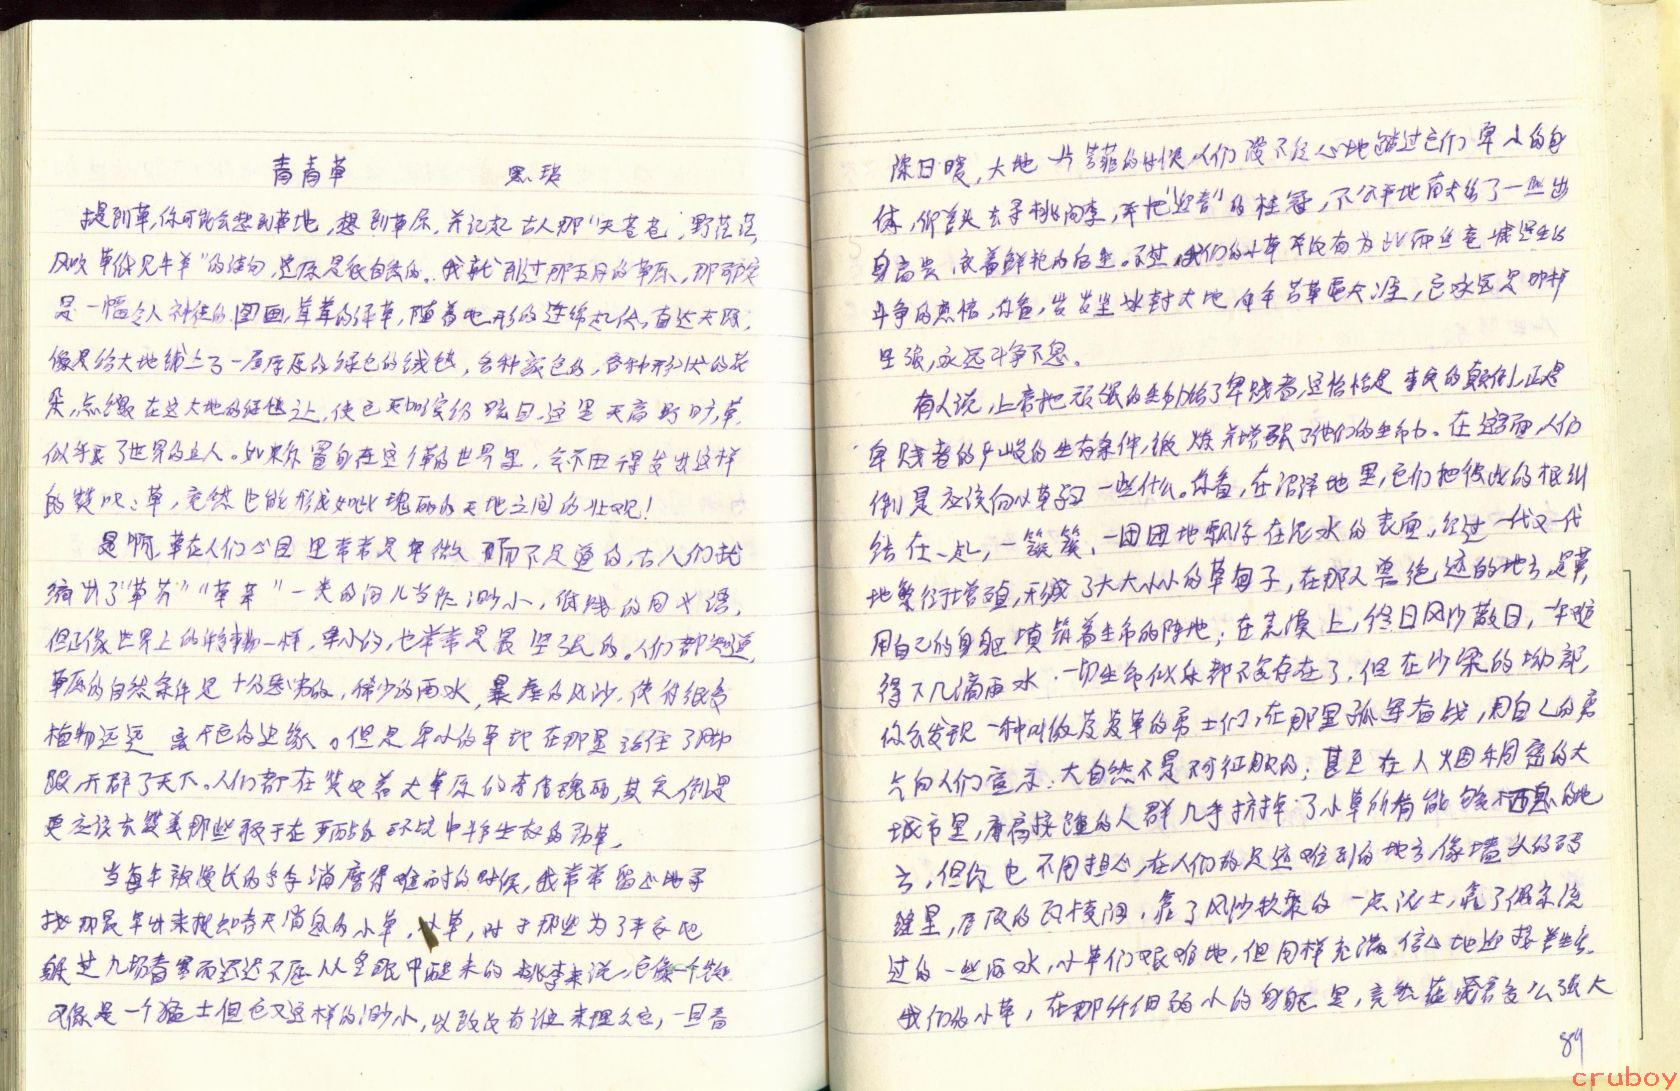 青青草 黑孩
提到草,你可能会想到草地,想到草原,并记起古人那"天苍苍,野茫茫,
风吹草低见牛羊"的佳句,这原是很自然的。我就到过那五月的草原,那确实
是一幅令人神往的图画,茸茸的绿草,随着地形的连绵起伏,直达天际,
像是给大地铺上了一层厚厚的绿色的绒毯,各种颜色的,各种形状的花
朵,点缀在这大地的绿毯之上,使它更加缤纷眩目,这里天高野旷,草
似乎成了世界的主人。如果你置身在这个草的世界里,会不由得发出这样
的赞叹:草,竟然也能形成如此瑰丽的天地之间的壮观!
是啊,草在人们心目里常常是卑微而不足道的,古人们就
编出了"草芥""草莽"一类的词儿当作渺小,低贱的同义语,
但正像世界上的 事物一样,卑小的,也常常是最坚强的。人们都知道,
草原的自然条件是十分恶劣的,稀少的雨水,暴虐的风沙,使得很多
植物远远离 它的边缘。但是卑小的草地在那里站住了脚
跟,开辟了天下。人们都在赞叹着大草原的 瑰丽,其实倒是
更应该去赞美那些敢于在 环境中 生存的劲草。
当每年被漫长的冬季消磨得难耐的时候,我常常留心地寻
找那最早出来报知春天消息的小草,小草,对于那些为了 地
躲过几场春寒而迟迟不愿从冬眠中醒来的桃李来说,它像一个
又像是一个猛士但它又这样的渺小,以致没有谁来理会它,一旦春
深日暖,大地一片芳菲的时候,人们漫不经心地踏过它们卑小的身
体,仰首去寻桃问李,并把"迎春"的桂冠,不公平地 给了一些出
身高贵,衣着鲜艳的后生。不过,我们的小草并没有为此而丝毫减退
斗争的热情,你看,岁岁 冰封大地,年年芳草 ,它永远是
坚强,永远斗争不息。
有人说,上帝把顽强的生命给了卑贱者,这恰恰是 的颠倒,正是
卑贱者的 的生存条件,锻炼并增强了他们的生命力。在这方面,人们
倒是应该向小草学习一些什么。你看,在沼泽地里,它们把彼此的根纠
结在一起,一簇簇,一团团地飘浮在泥水的表面,经过一代又一代
地繁衍增殖,形成了大大小小的草甸子,在那人兽绝迹的地方是草,
用自己的身躯填筑着生命的阵地;在荒漠上,终日风沙蔽日,一年难
得下几滴雨水,一切生命似乎都不能存在了,但在沙梁的坳部,
你会发现一种叫做芨芨草的勇士们,在那里孤军奋战,用自己的勇
气向人们宣示:大自然不是不可征服的;甚至在人烟稠密的大
城市里,摩肩接踵的人群几乎挤掉了小草所有能够栖息的地
方,但你也不用担心,在人们的足迹难到的地方像墙头的砖
缝里,屋顶的瓦楞间,靠了风沙 的一点泥土,靠了偶尔流
过的一些雨水,小草们艰难地,但同样充满信心地迎接着生活。
我们的小草,在那纤细弱小的身躯里,竟然蕴藏着多么强大
89
cruboy